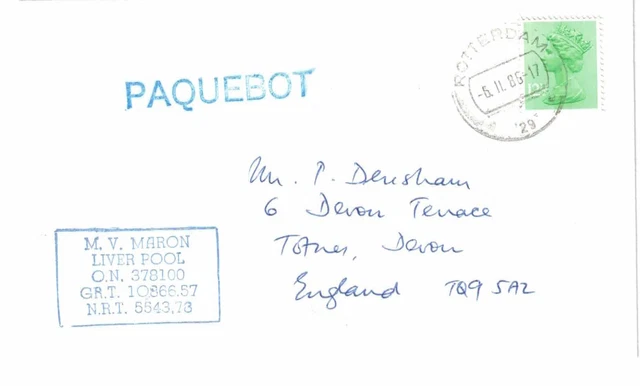 PAQUEBOT
ROTTERDAM
-6. II. 86-17
29
Mr. P. Densham
6 Devon Terrace
Totnes, Devon
England TQ9 5AZ
M. V. MARON
LIVER POOL
O.N. 378100
G.R.T. 10866.57
N.R.T. 5543.73